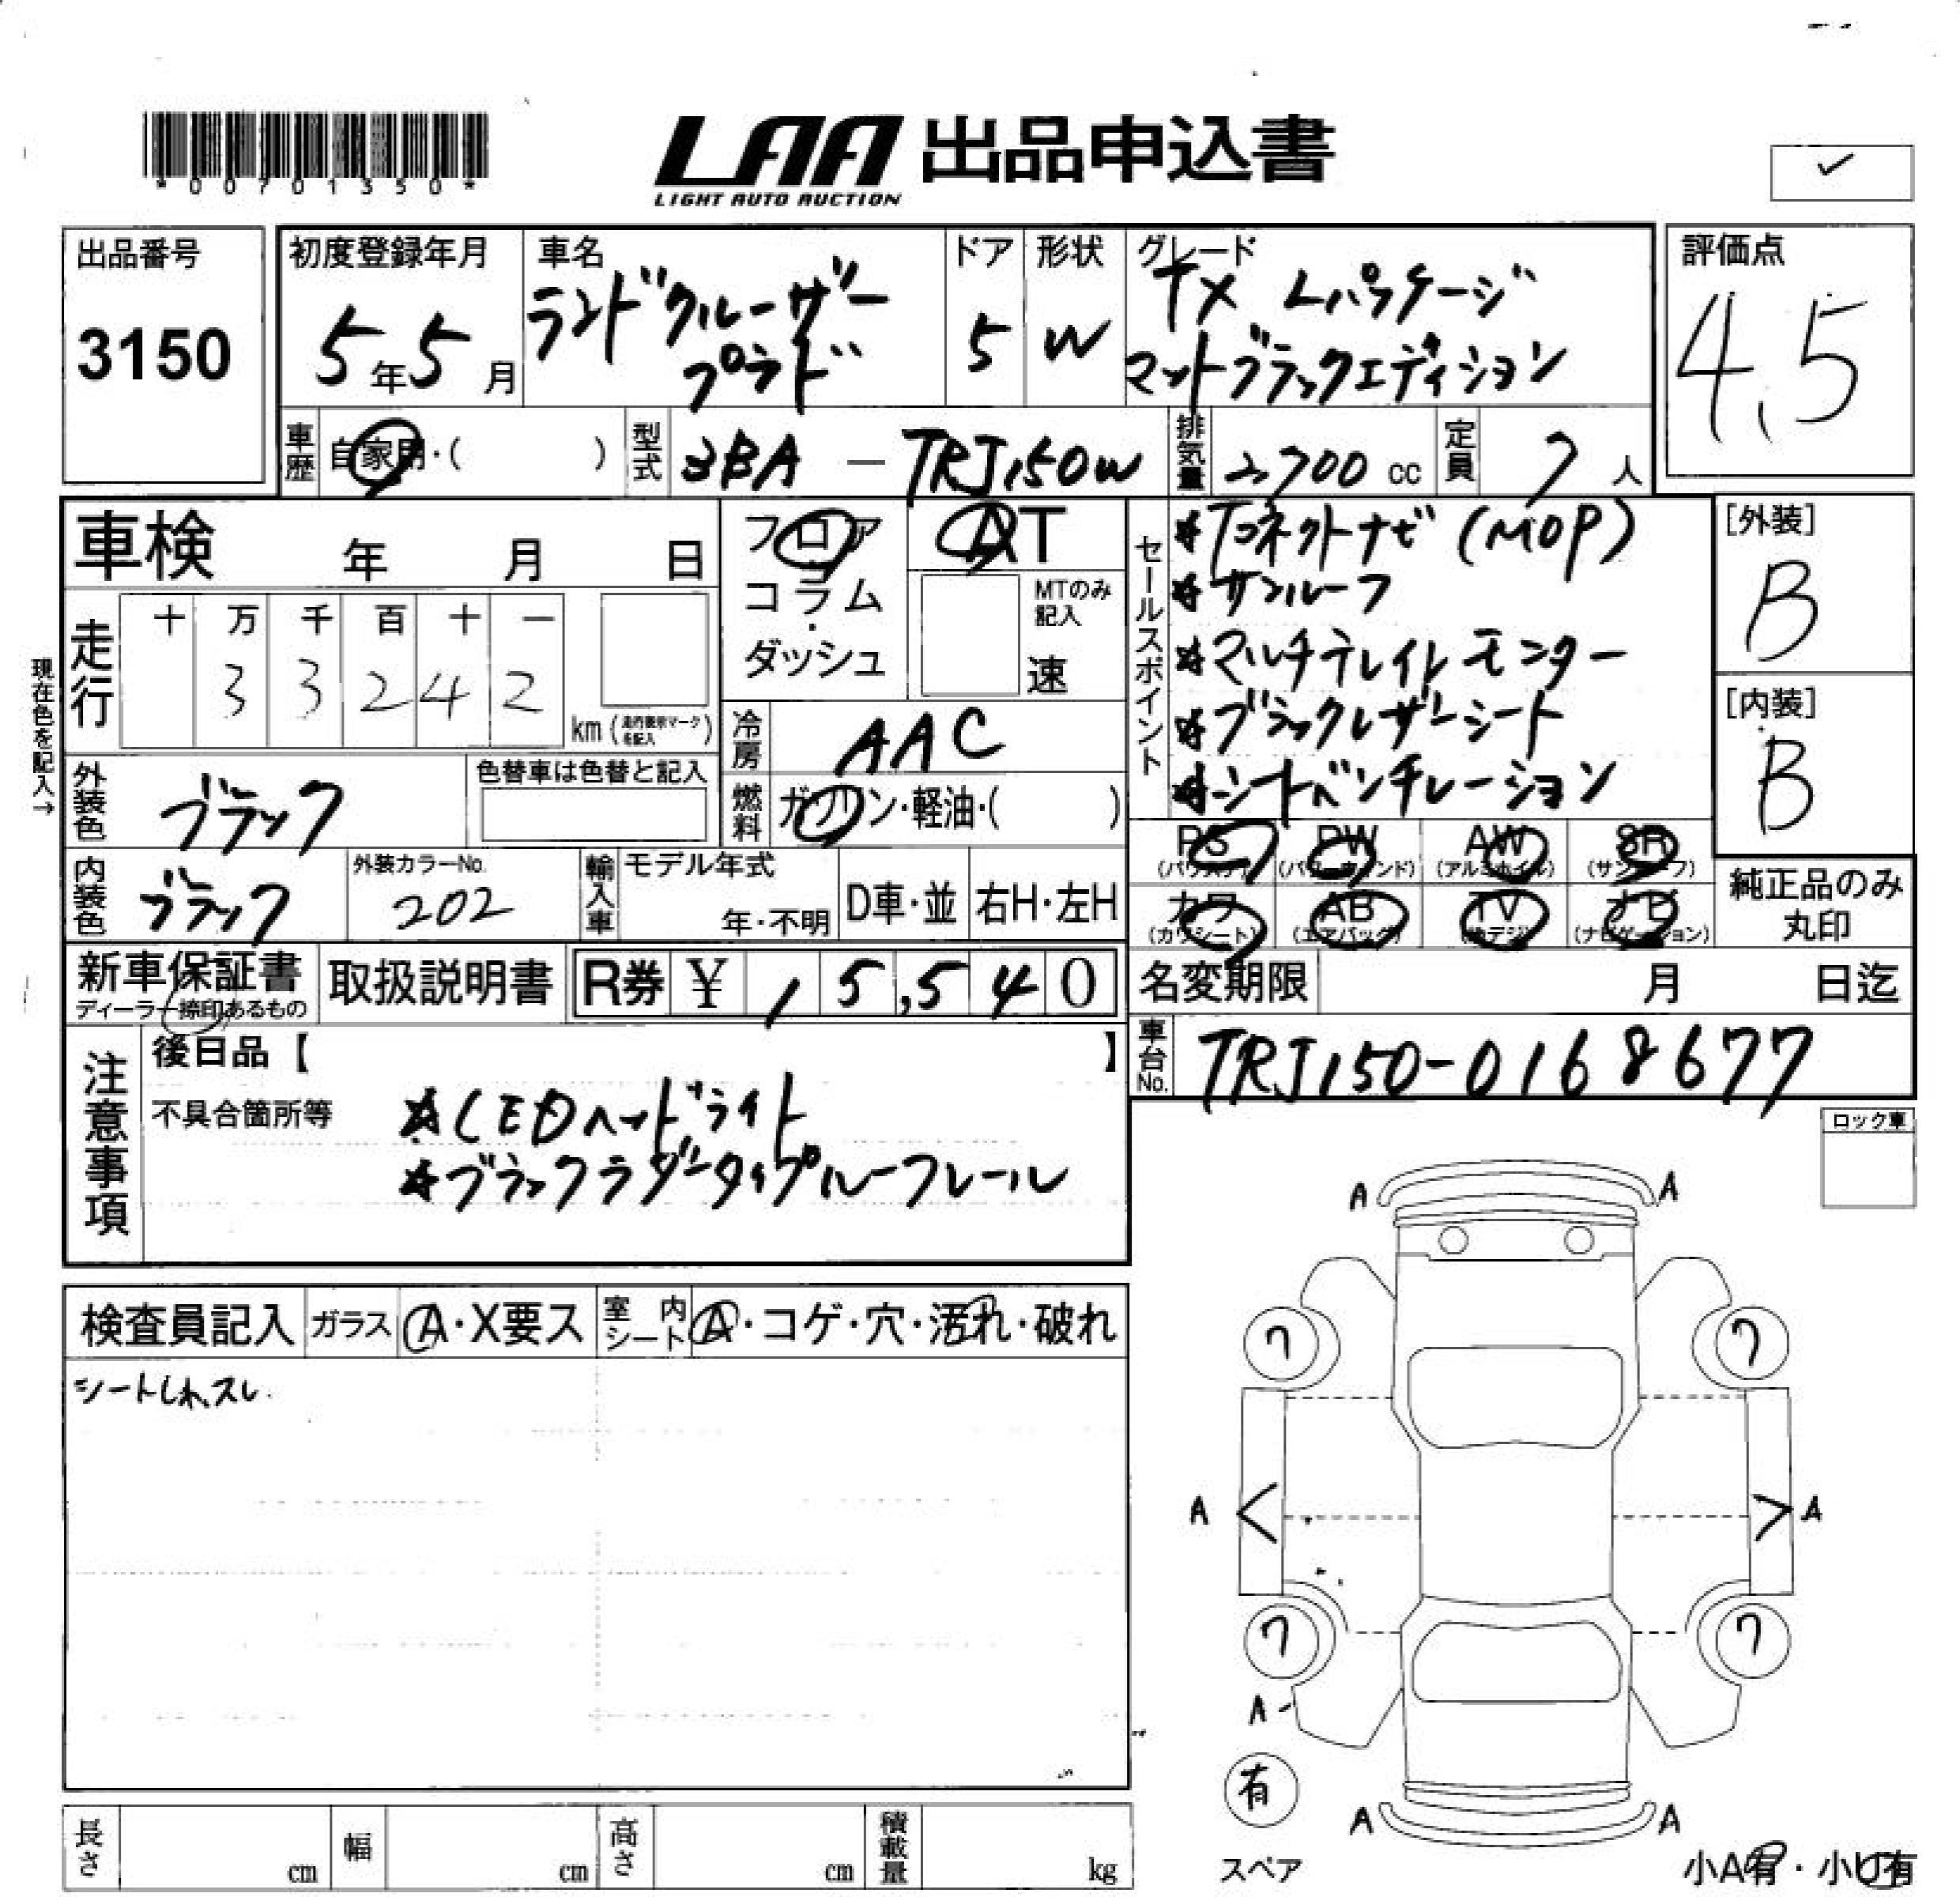 *00701350*
LAA 出品申込書
LIGHT AUTO AUCTION
✓
出品番号
3150
初度登録年月
5年5月
車名
ランドクルーザー
プラド
ドア
5
形状
W
グレード
TX Lパッケージ
マットブラックエディション
評価点
4.5
車歴
自家用・( )
型式
3BA - TRJ150W
排気量
2,700 cc
定員
7人
車検 年 月 日
フロア
コラム
ダッシュ
AT
MTのみ
記入
速
セールスポイント
*Tコネクトナビ (MOP)
*サンルーフ
*マルチテレインモニター
*ブラックレザーシート
*シートベンチレーション
[外装]
B
[内装]
B
現在色を記入→
走行
十 万 千 百 十 一
3 3 2 4 2
km (走行表示マークを記入)
冷房
AAC
燃料
ガソリン・軽油・( )
外装色
ブラック
色替車は色替と記入
内装色
ブラック
外装カラーNo.
202
輸入車
モデル年式
年・不明
D車・並
右H・左H
PS (パワステ)
PW (パワーウィンド)
AW (アルミホイル)
SR (サンルーフ)
カワ (カワシート)
AB (エアバッグ)
TV (地デジ)
ナビ (ナビゲーション)
純正品のみ
丸印
新車保証書
ディーラー捺印あるもの
取扱説明書
R券 ¥ 15,540
名変期限 月 日迄
車台No.
TRJ150-0168677
注意事項
後日品【 】
不具合箇所等
*LEDヘッドライト
*ブラックラダータイプルーフレール
ロック車
検査員記入
ガラス
A・X要ス
室内シート
A・コゲ・穴・汚れ・破れ
シートしわ、スレ
A A
7 7
A < > A
7 7
A-
有
A A
スペア
小A有・小U有
長さ cm
幅 cm
高さ cm
積載量 kg